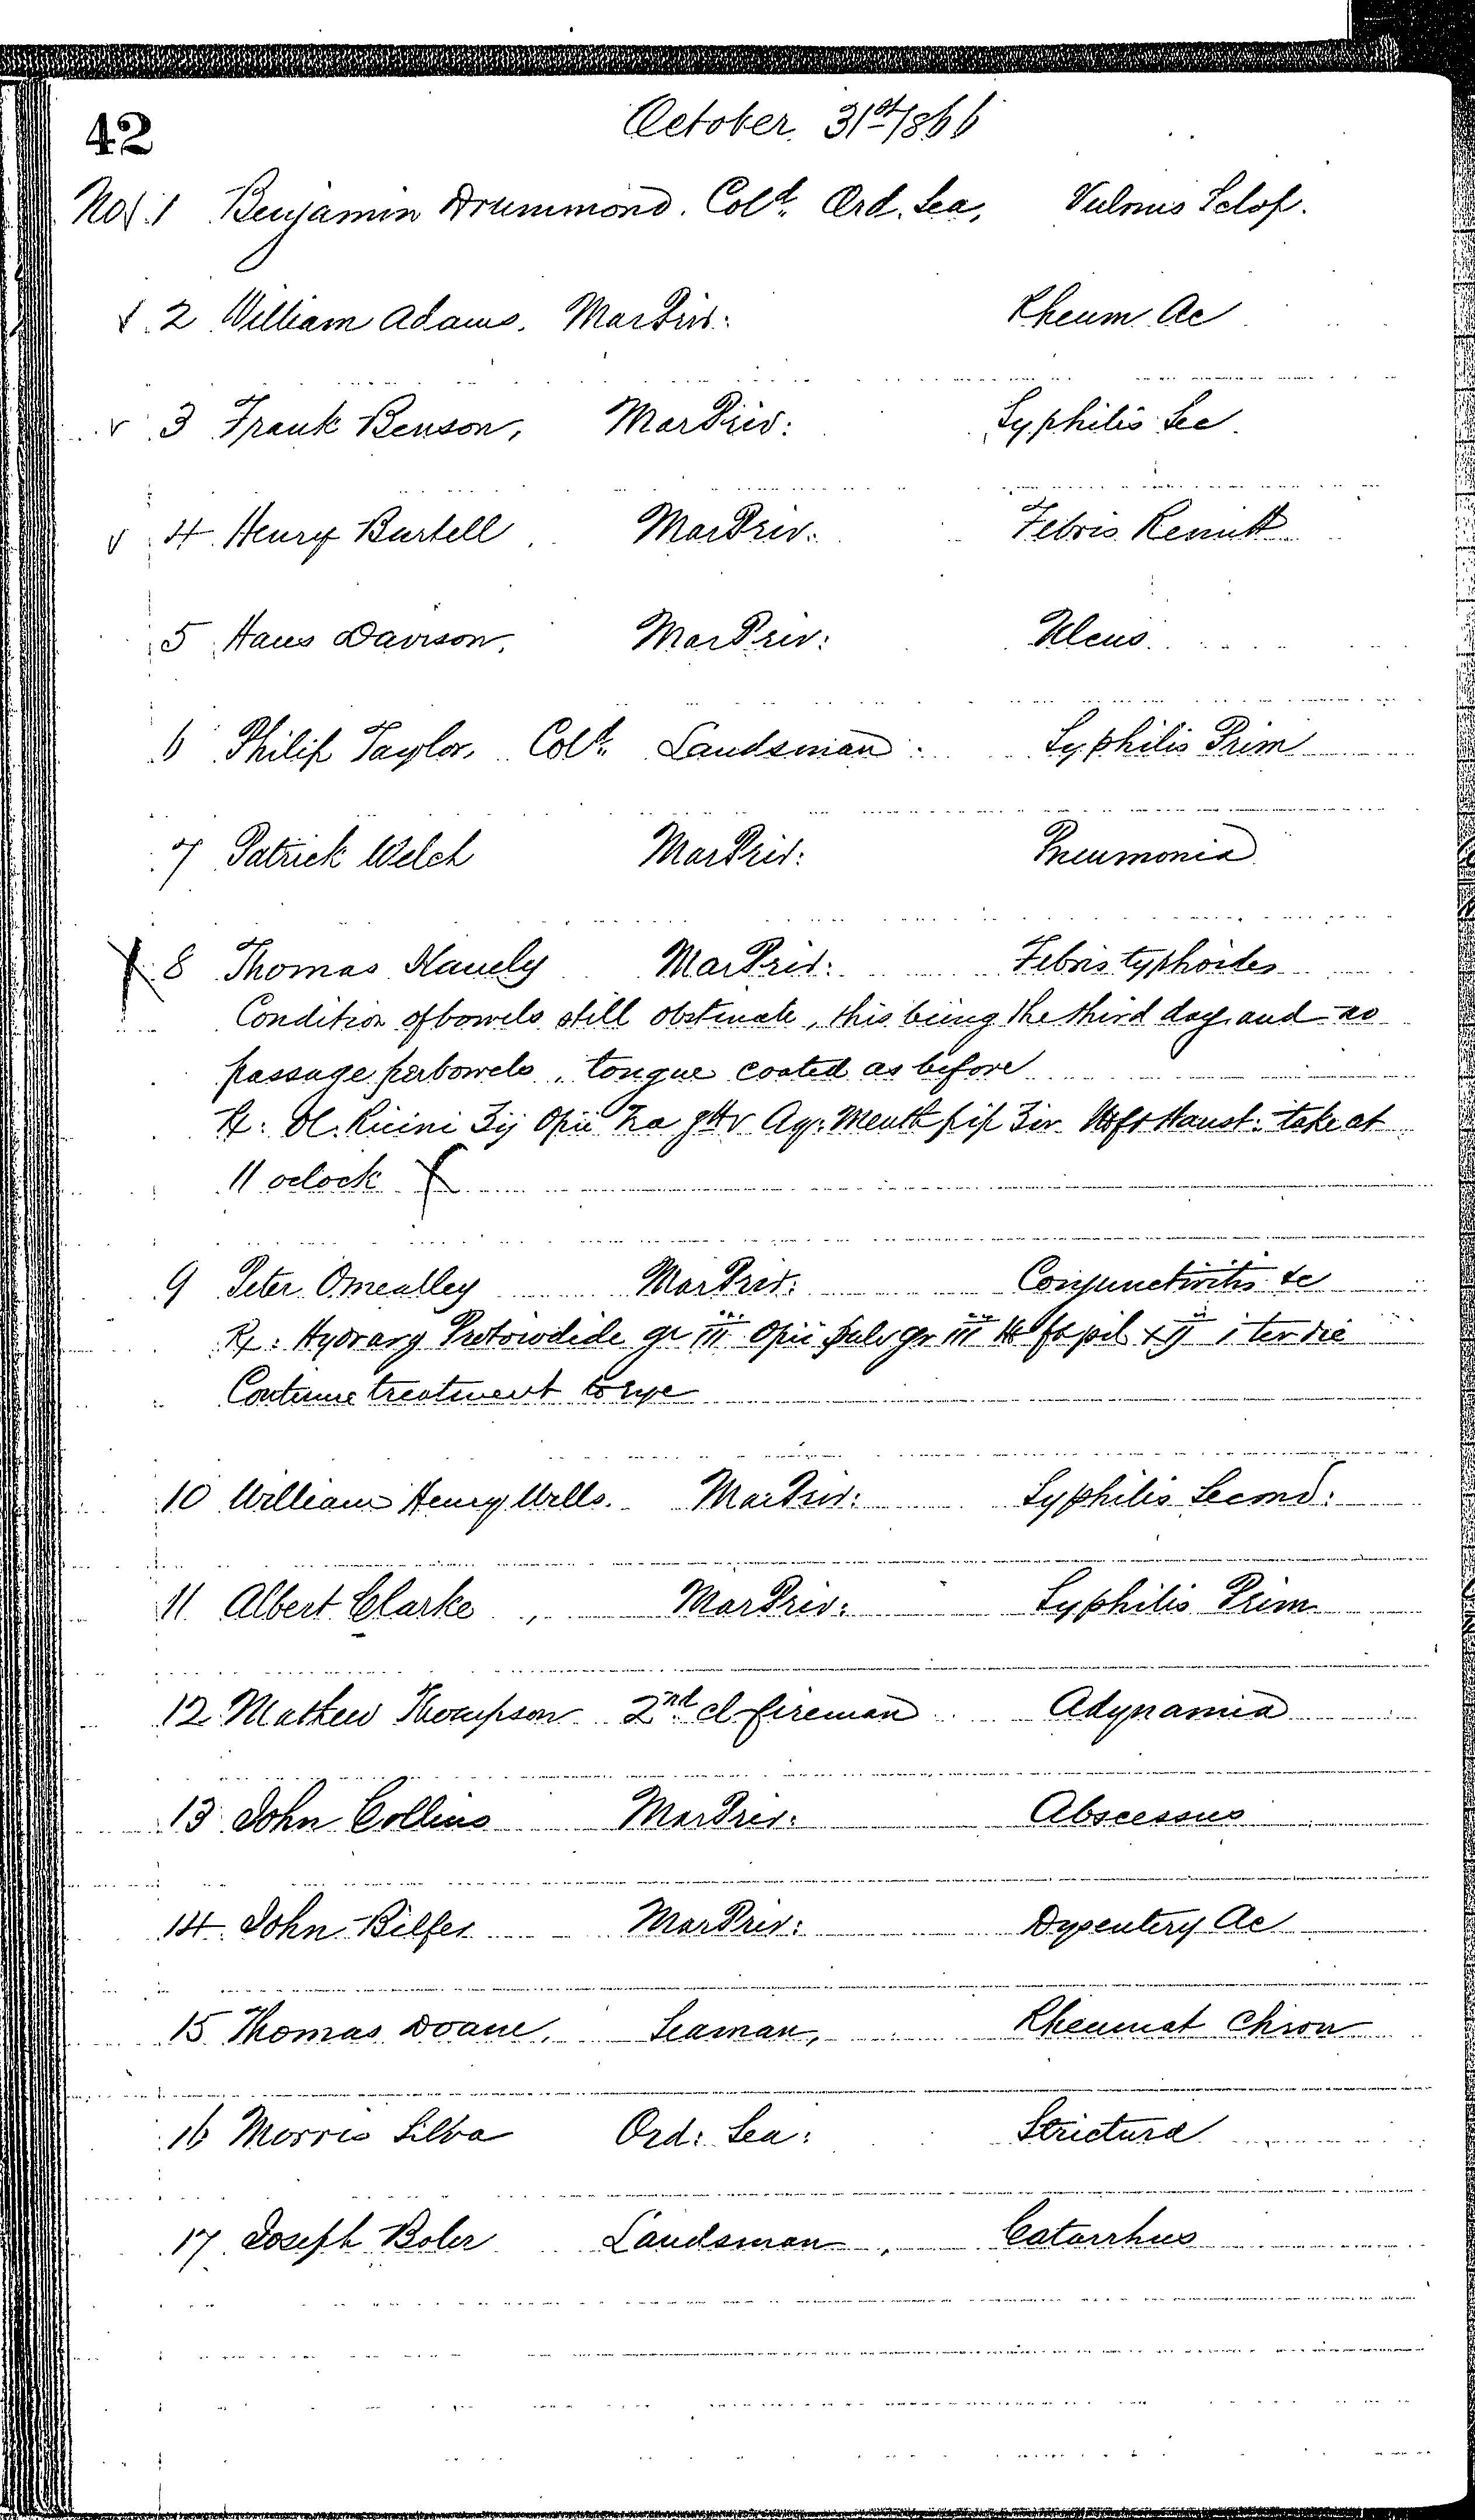 42
October. 31st 1866
No. 1 Benjamin Drummond. Cold. Ord. Sea, Vulnus Sclop.
2 William Adams. Mar Priv: Rheum Ac
3 Frank Benson, Mar Priv: Syphilis Sec
4 Henry Bartell Mar Priv: Febris Remitt
5 Hans Davison, Mar Priv: Ulcus
6 Philip Taylor, Cold. Landsman Syphilis Prim
7 Patrick Welch Mar Priv: Pneumonia
8 Thomas Mar Priv: Febris typhoides
Condition of bowels still obstinate, this being the third day and no
passage per bowels, tongue coated as before
Rx: Ol. Ricini ʒij Opii Tra gtt v Aq: Menth pip ʒiv Haust: take at
11 oclock X
9 Peter Omealley Mar Priv: Conjunctivitis &c
Rx: Hydrarg Protoiodide gr iii Opii pulv gr iii ft pil xij i ter die
Continue treatment to eye
10 William Henry Wells. Mar Priv: Syphilis Second:
11 Albert Clarke, Mar Priv: Syphilis Prim
12 Mathew Thompson 2nd cl fireman Adynamia
13 John Collins Mar Priv: Abscessus
14 John Bilfer Mar Priv: Dysentery Ac
15 Thomas Doane, Seaman, Rheumat Chron
16 Morris Silva Ord: Sea: Strictura
17 Joseph Boler Landsman, Catarrhus